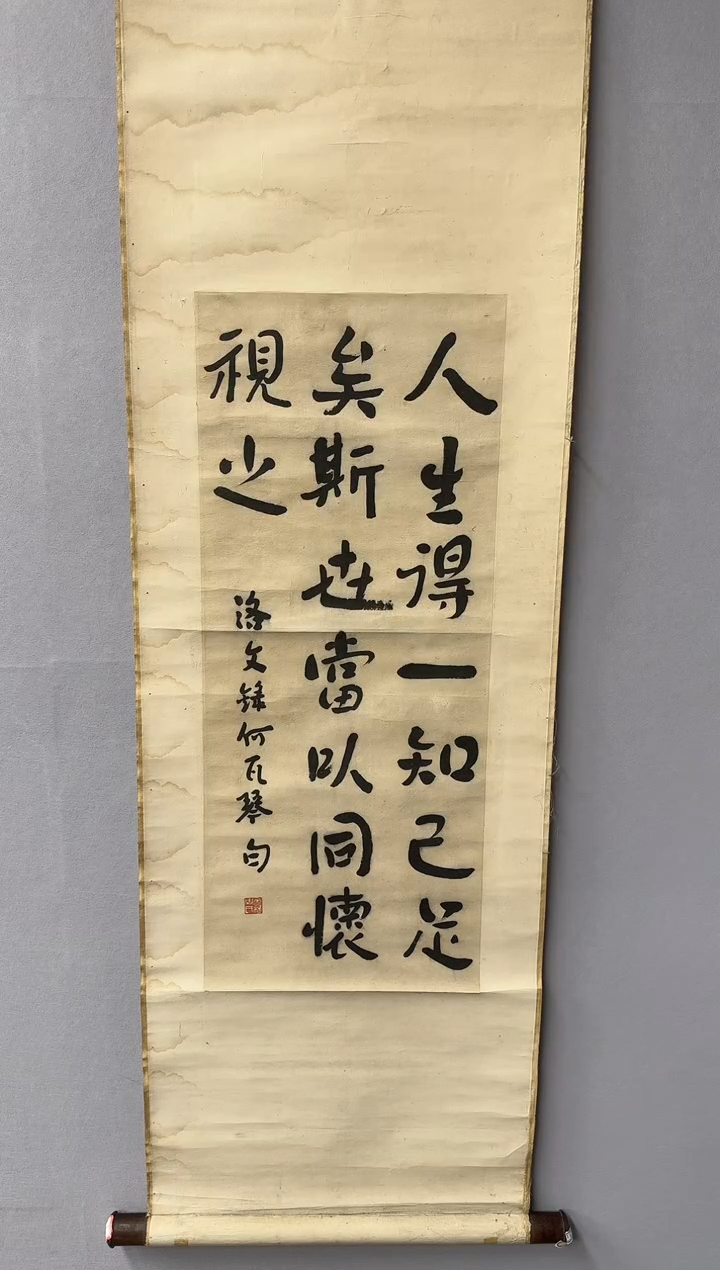 人生得一知己足
矣斯世當以同懷
視之
洛文録何瓦琴句